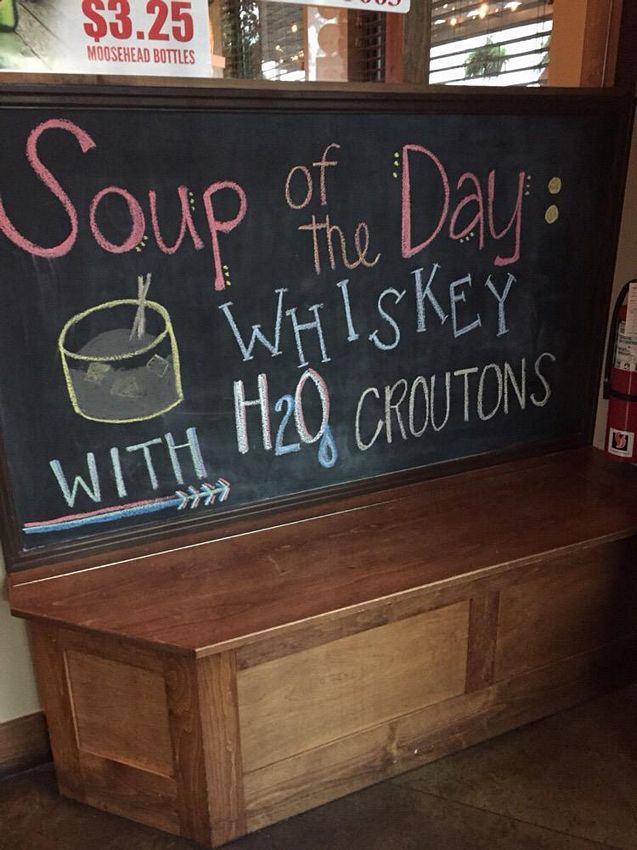 $3.25
MOOSEHEAD BOTTLES
Soup of the Day:
WHISKEY
WITH H2O CROUTONS